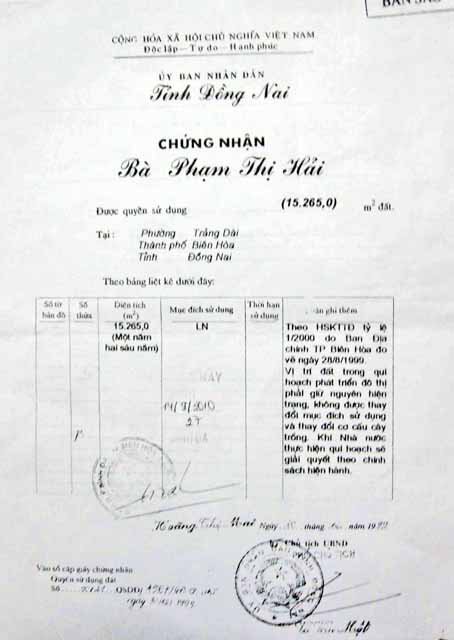 BẢN SAO
CỘNG HÒA XÃ HỘI CHỦ NGHĨA VIỆT NAM
Độc lập—Tự do—Hạnh phúc
ỦY BAN NHÂN DÂN
Tỉnh Đồng Nai
CHỨNG NHẬN
Bà Phạm Thị Hải
Được quyền sử dụng (15.265,0) m² đất.
Tại: Phường Trảng Dài
Thành phố Biên Hòa
Tỉnh Đồng Nai
Theo bảng liệt kê dưới đây:
Số tờ bản đồ
Số thửa
Diện tích (m²)
Mục đích sử dụng
Thời hạn sử dụng
ghi thêm
15.265,0
(Một năm
hai sáu năm)
LN
Theo HSKTTĐ tỷ lệ
1/2000 do Ban Địa
chính TP Biên Hòa đo
vẽ ngày 28/8/1999.
Vị trí đất trong qui
hoạch phát triển đô thị
phải giữ nguyên hiện
trạng, không được thay
đổi mục đích sử dụng
và thay đổi cơ cấu cây
trồng. Khi Nhà nước
thực hiện qui hoạch sẽ
giải quyết theo chính
sách hiện hành.
Hoàng Thị Mai Ngày tháng năm
Chủ tịch UBND
Vào sổ cấp giấy chứng nhận
Quyền sử dụng đất
Số QSDĐ